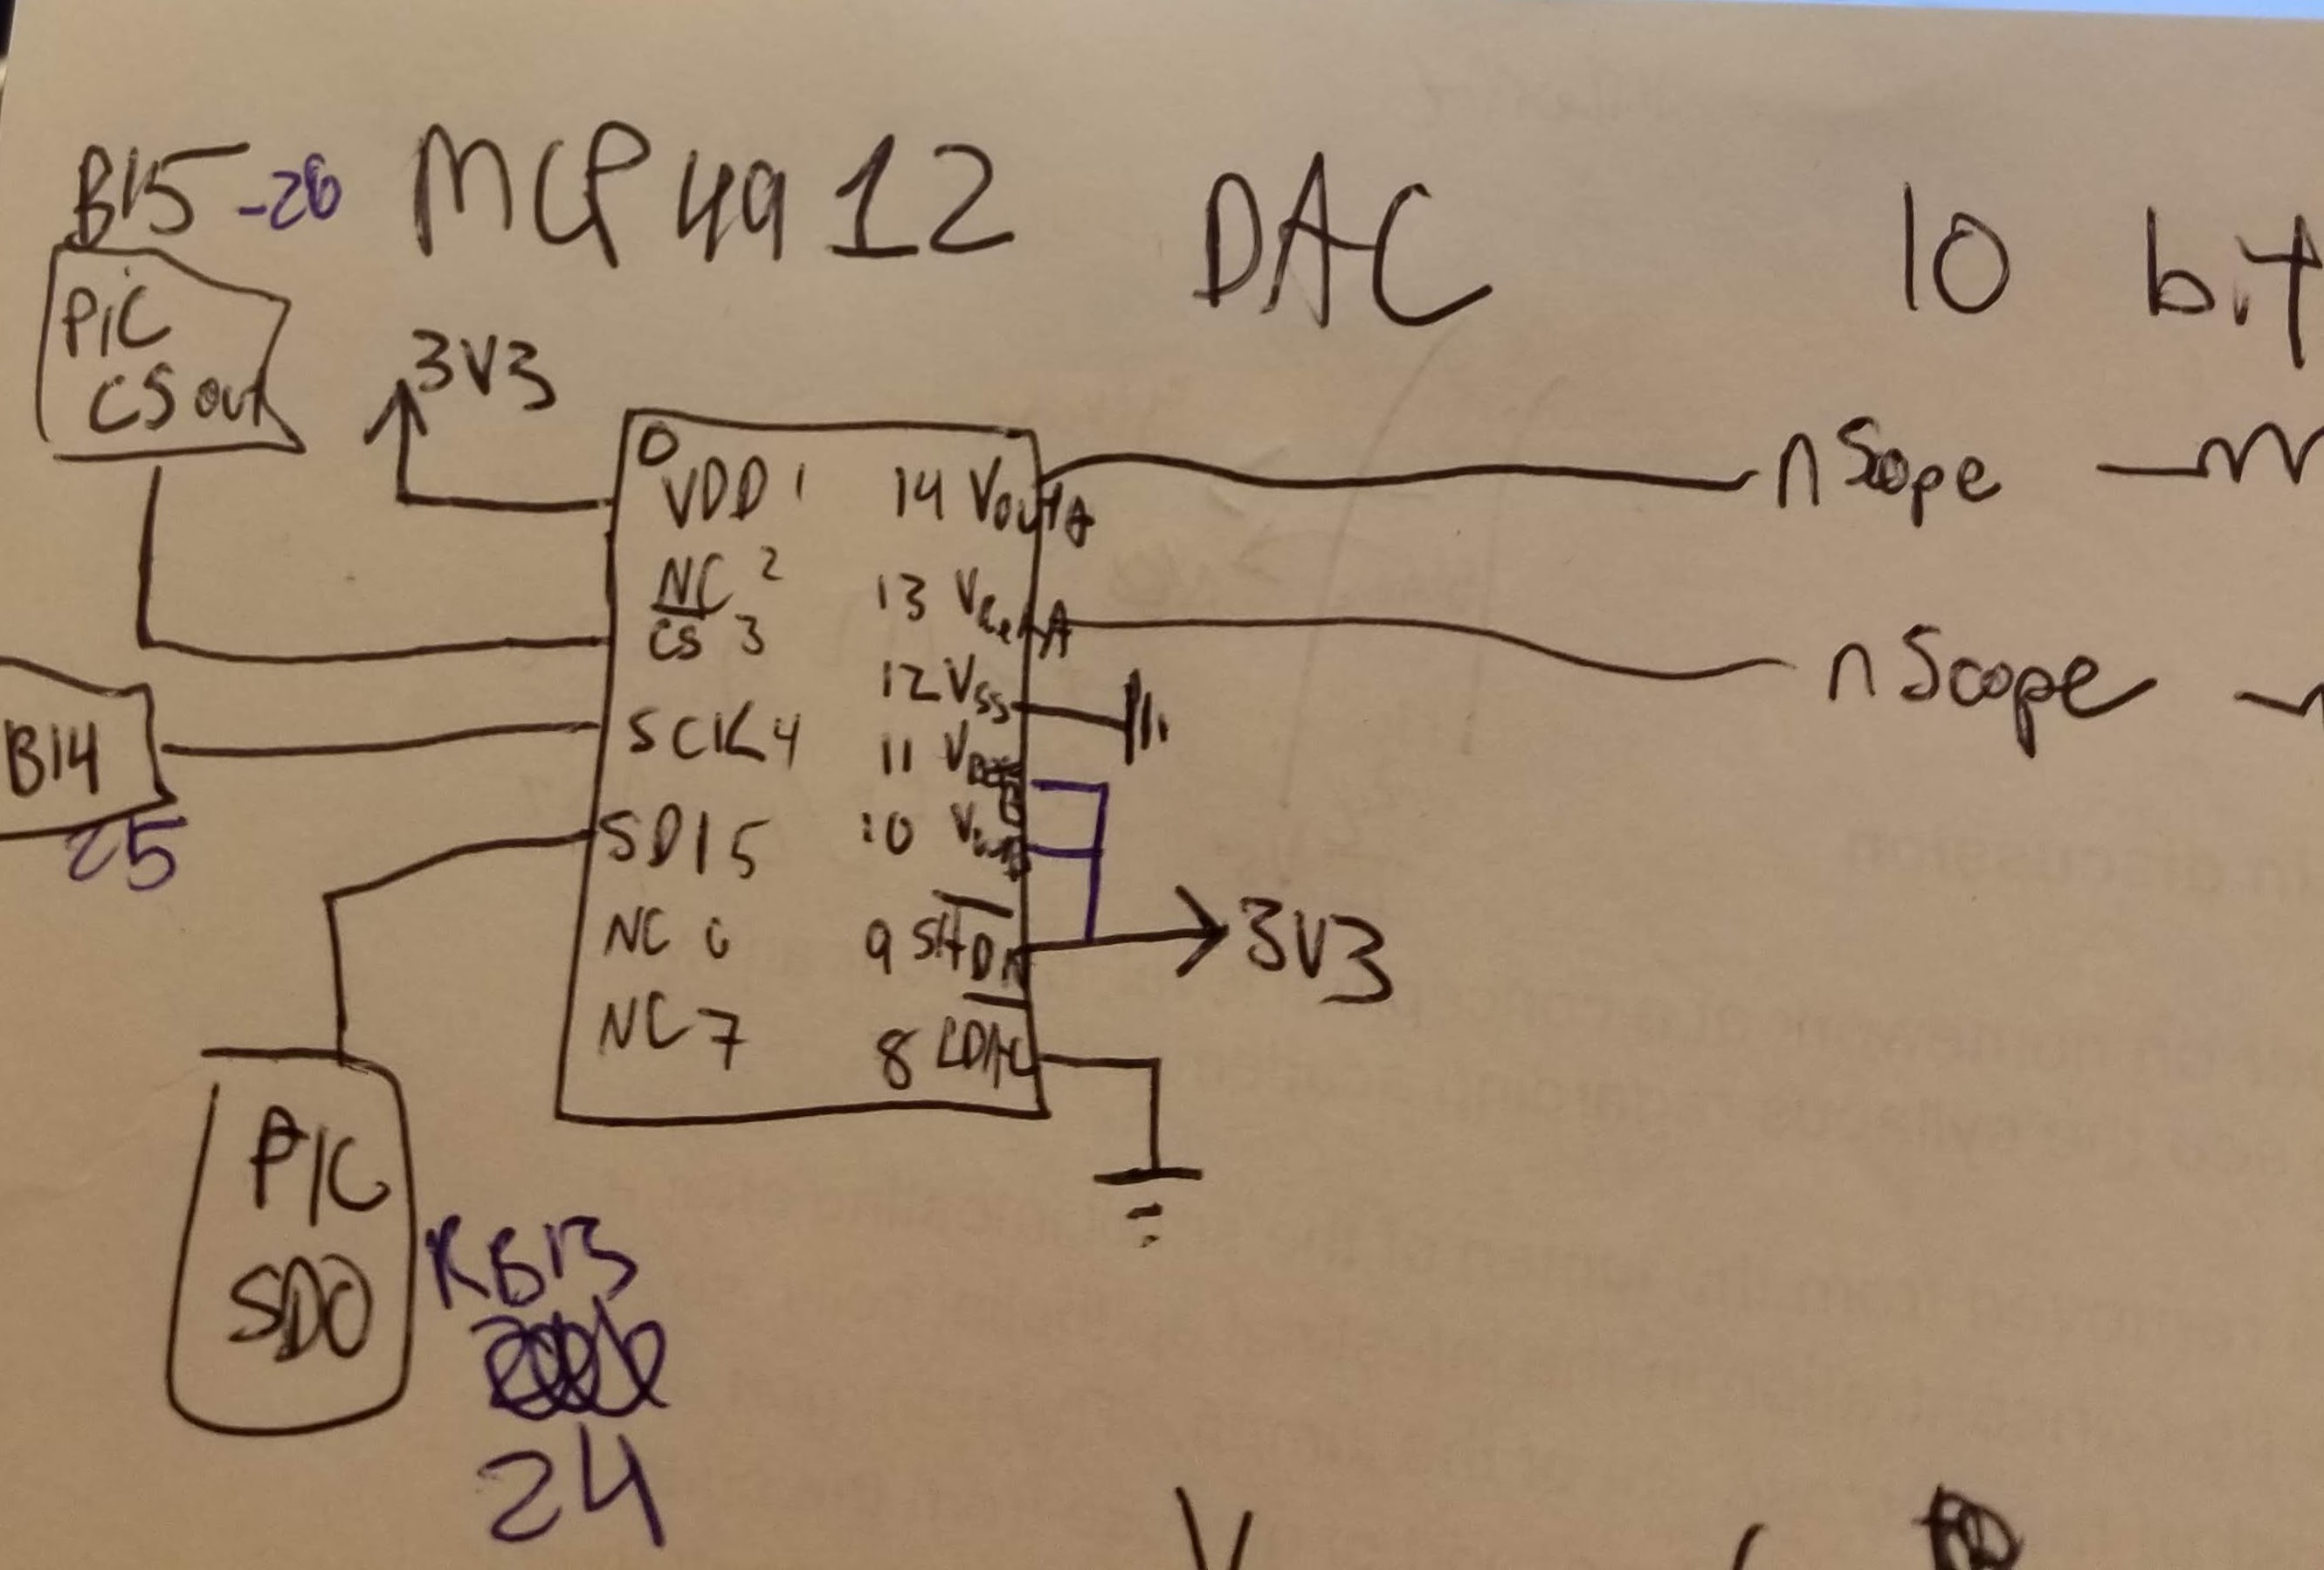 B15-26 MCP4912 DAC 10 bit
PIC
CS out
3V3
VDD 1
NC 2
CS 3
SCK 4
SDI 5
NC 6
NC 7
14 VoutA
13 VRefA
12 VSS
11 VRefB
10
9 SHDN
8 LDAC
nScope
nScope
3V3
B14
25
PIC
SDO
RB13
24